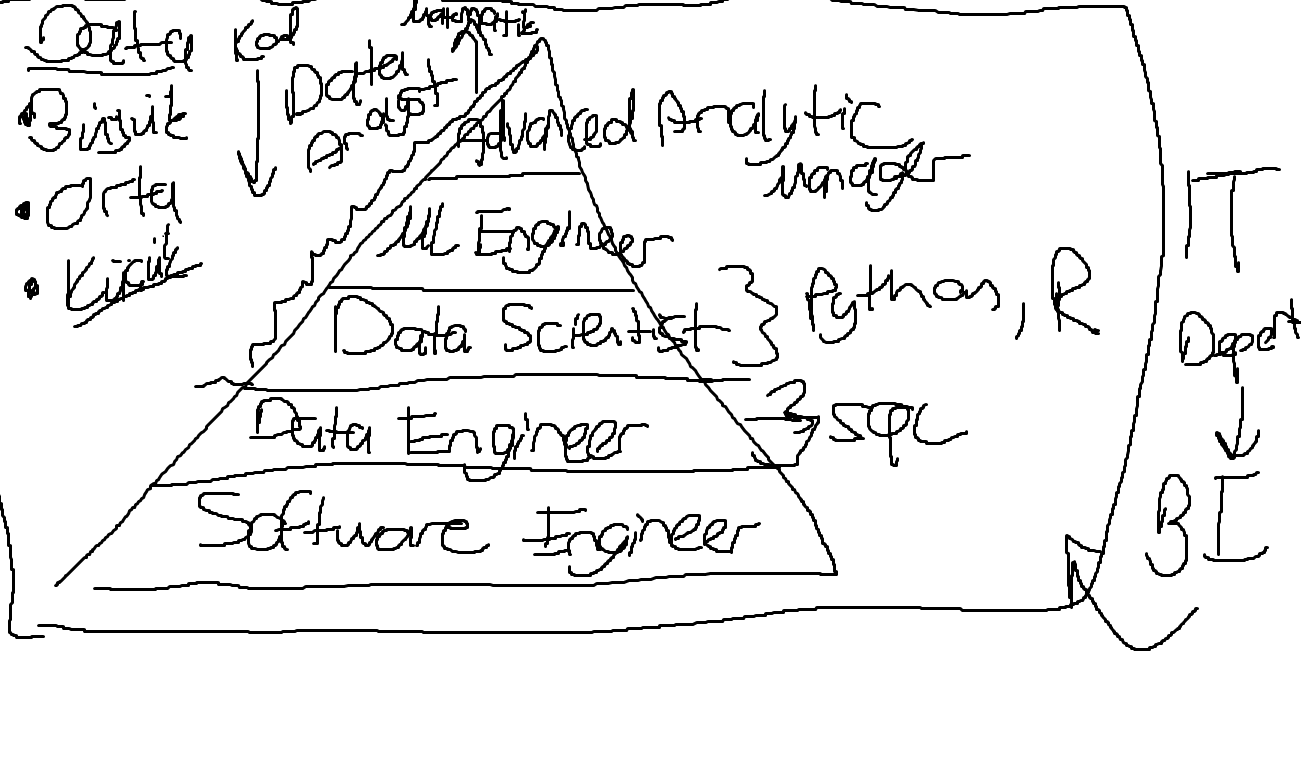 Data
Büyük
• Orta
• Küçük
Kod
Data
Analyst
Matematik
Advanced Analytic
Manager
ML Engineer
Data Scientist
Python, R
Data Engineer
SQL
Software Engineer
IT
Depart
BI